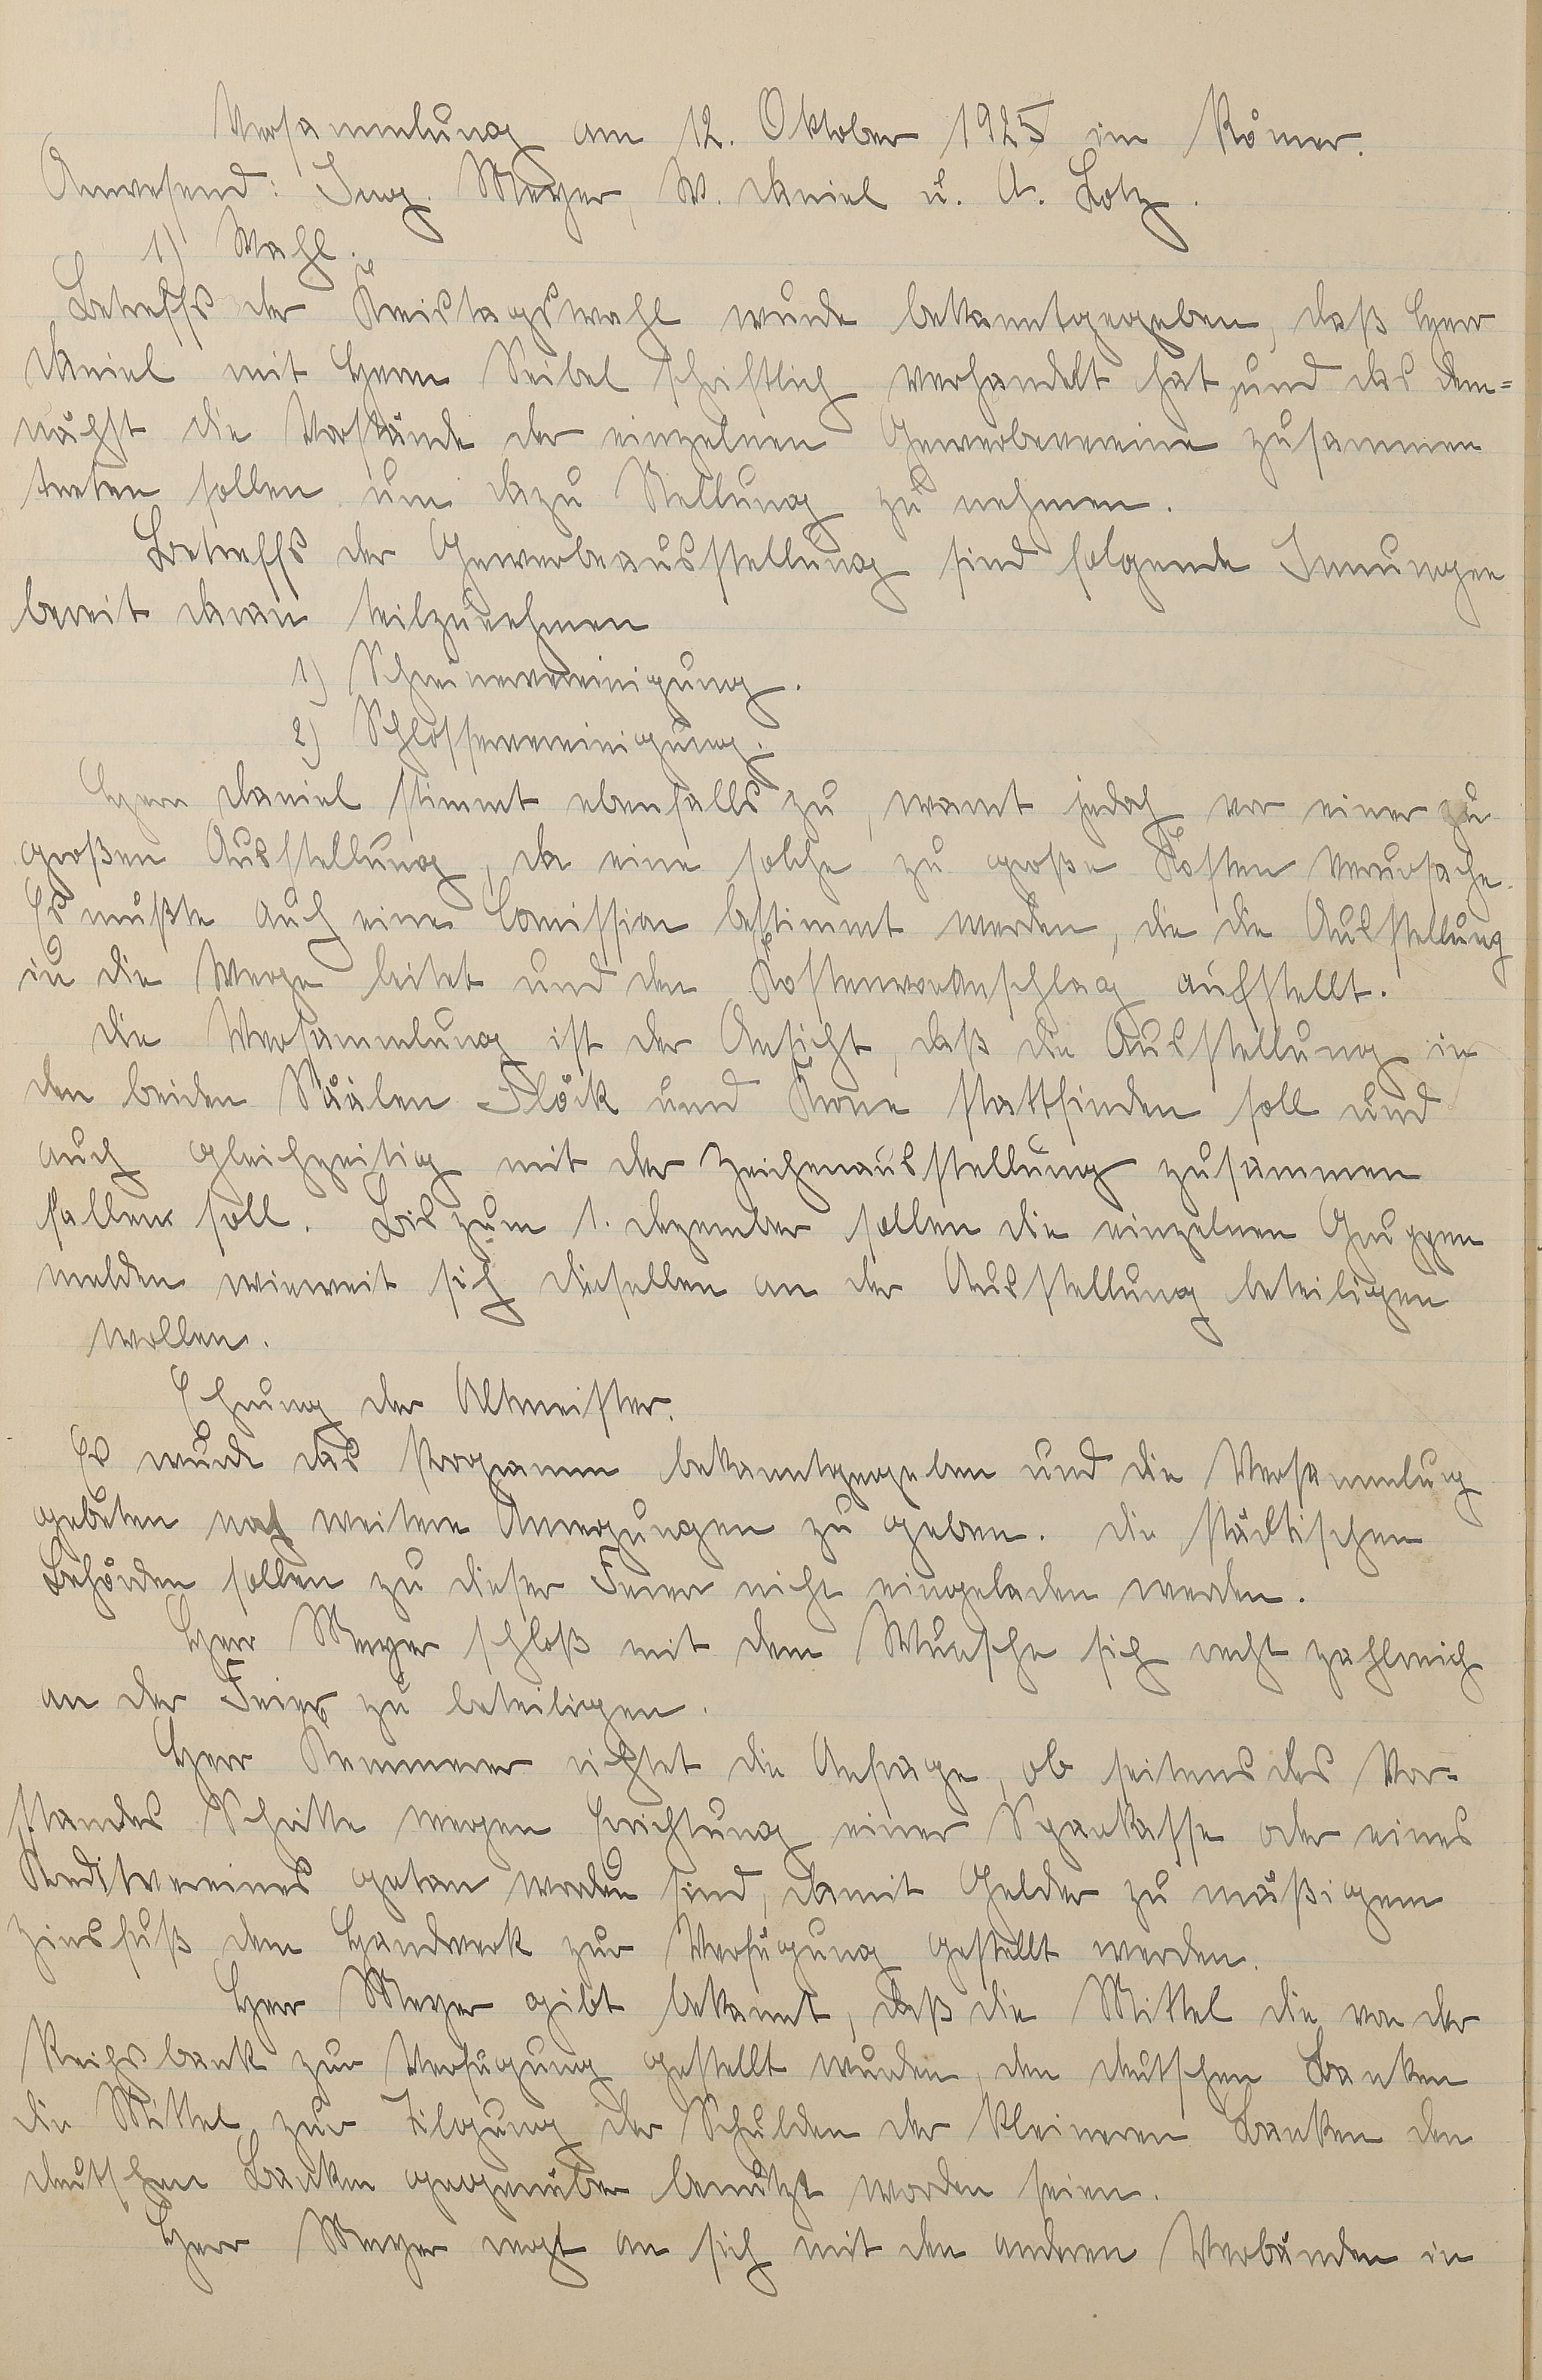 Versammlung am 12. Oktober 1925 im Römer.
Anwesend: Ing. Meyer, W. Daniel u. A. Lotz.
1) Wahl.
Betreffs der Kreistagswahl wurde bekanntgegeben, daß Herr
Daniel mit Herrn Seibel schriftlich verhandelt hat und das dem=
nächst die Vorstände der einzelnen Gewerbevereine zusammen
treten sollen um dazu Stellung zu nehmen.
Betreffs der Gewerbeausstellung sind folgende Innungen
bereit daran teilzunehmen
1) Schreinervereinigung.
2) Schlosservereinigung.
Herr Daniel stimmt ebenfalls zu, warnt jedoch vor einer zu
großen Ausstellung, da eine solche zu große Kosten verursache.
Es müßte auch eine Comission bestimmt werden, die die Ausstellung
in die Wege leitet und den Kostenvoranschlag aufstellt.
Die Versammlung ist der Ansicht, daß die Ausstellung in
den beiden Säälen Flöck und Krone stattfinden soll und
auch gleichzeitig mit der Zeichenausstellung zusammen
fallen soll. Bis zum 1. Dezember sollen die einzelnen Gruppen
melden wieweit sich dieselben an der Ausstellung beteiligen
wollen.
Ehrung der Altmeister.
Es wurde das Programm bekanntgegeben und die Versammlung
gebeten noch weitere Anregungen zu geben. Die städtischen
Behörden sollen zu dieser Feier nicht eingeladen werden.
Herr Meyer schloß mit dem Wunsche sich recht zahlreich
an der Feier zu beteiligen.
Herr Kemmerer richtet die Anfrage, ob seitens des Vor=
standes Schritte wegen Errichtung einer Sparkasse oder eines
Kreditvereines getan worden sind, damit Gelder zu mäßigem
Zinsfuß dem Handwerk zur Verfügung gestellt werden.
Herr Meyer gibt bekannt, daß die Mittel die von der
Reichsbank zur Verfügung gestellt wurden, den deutschen Banken
die Mittel zur Tilgung der Schulden der kleineren Banken den
deutschen Banken gegenüber benützt worden seien.
Herr Meyer regt an sich mit den anderen Verbänden in